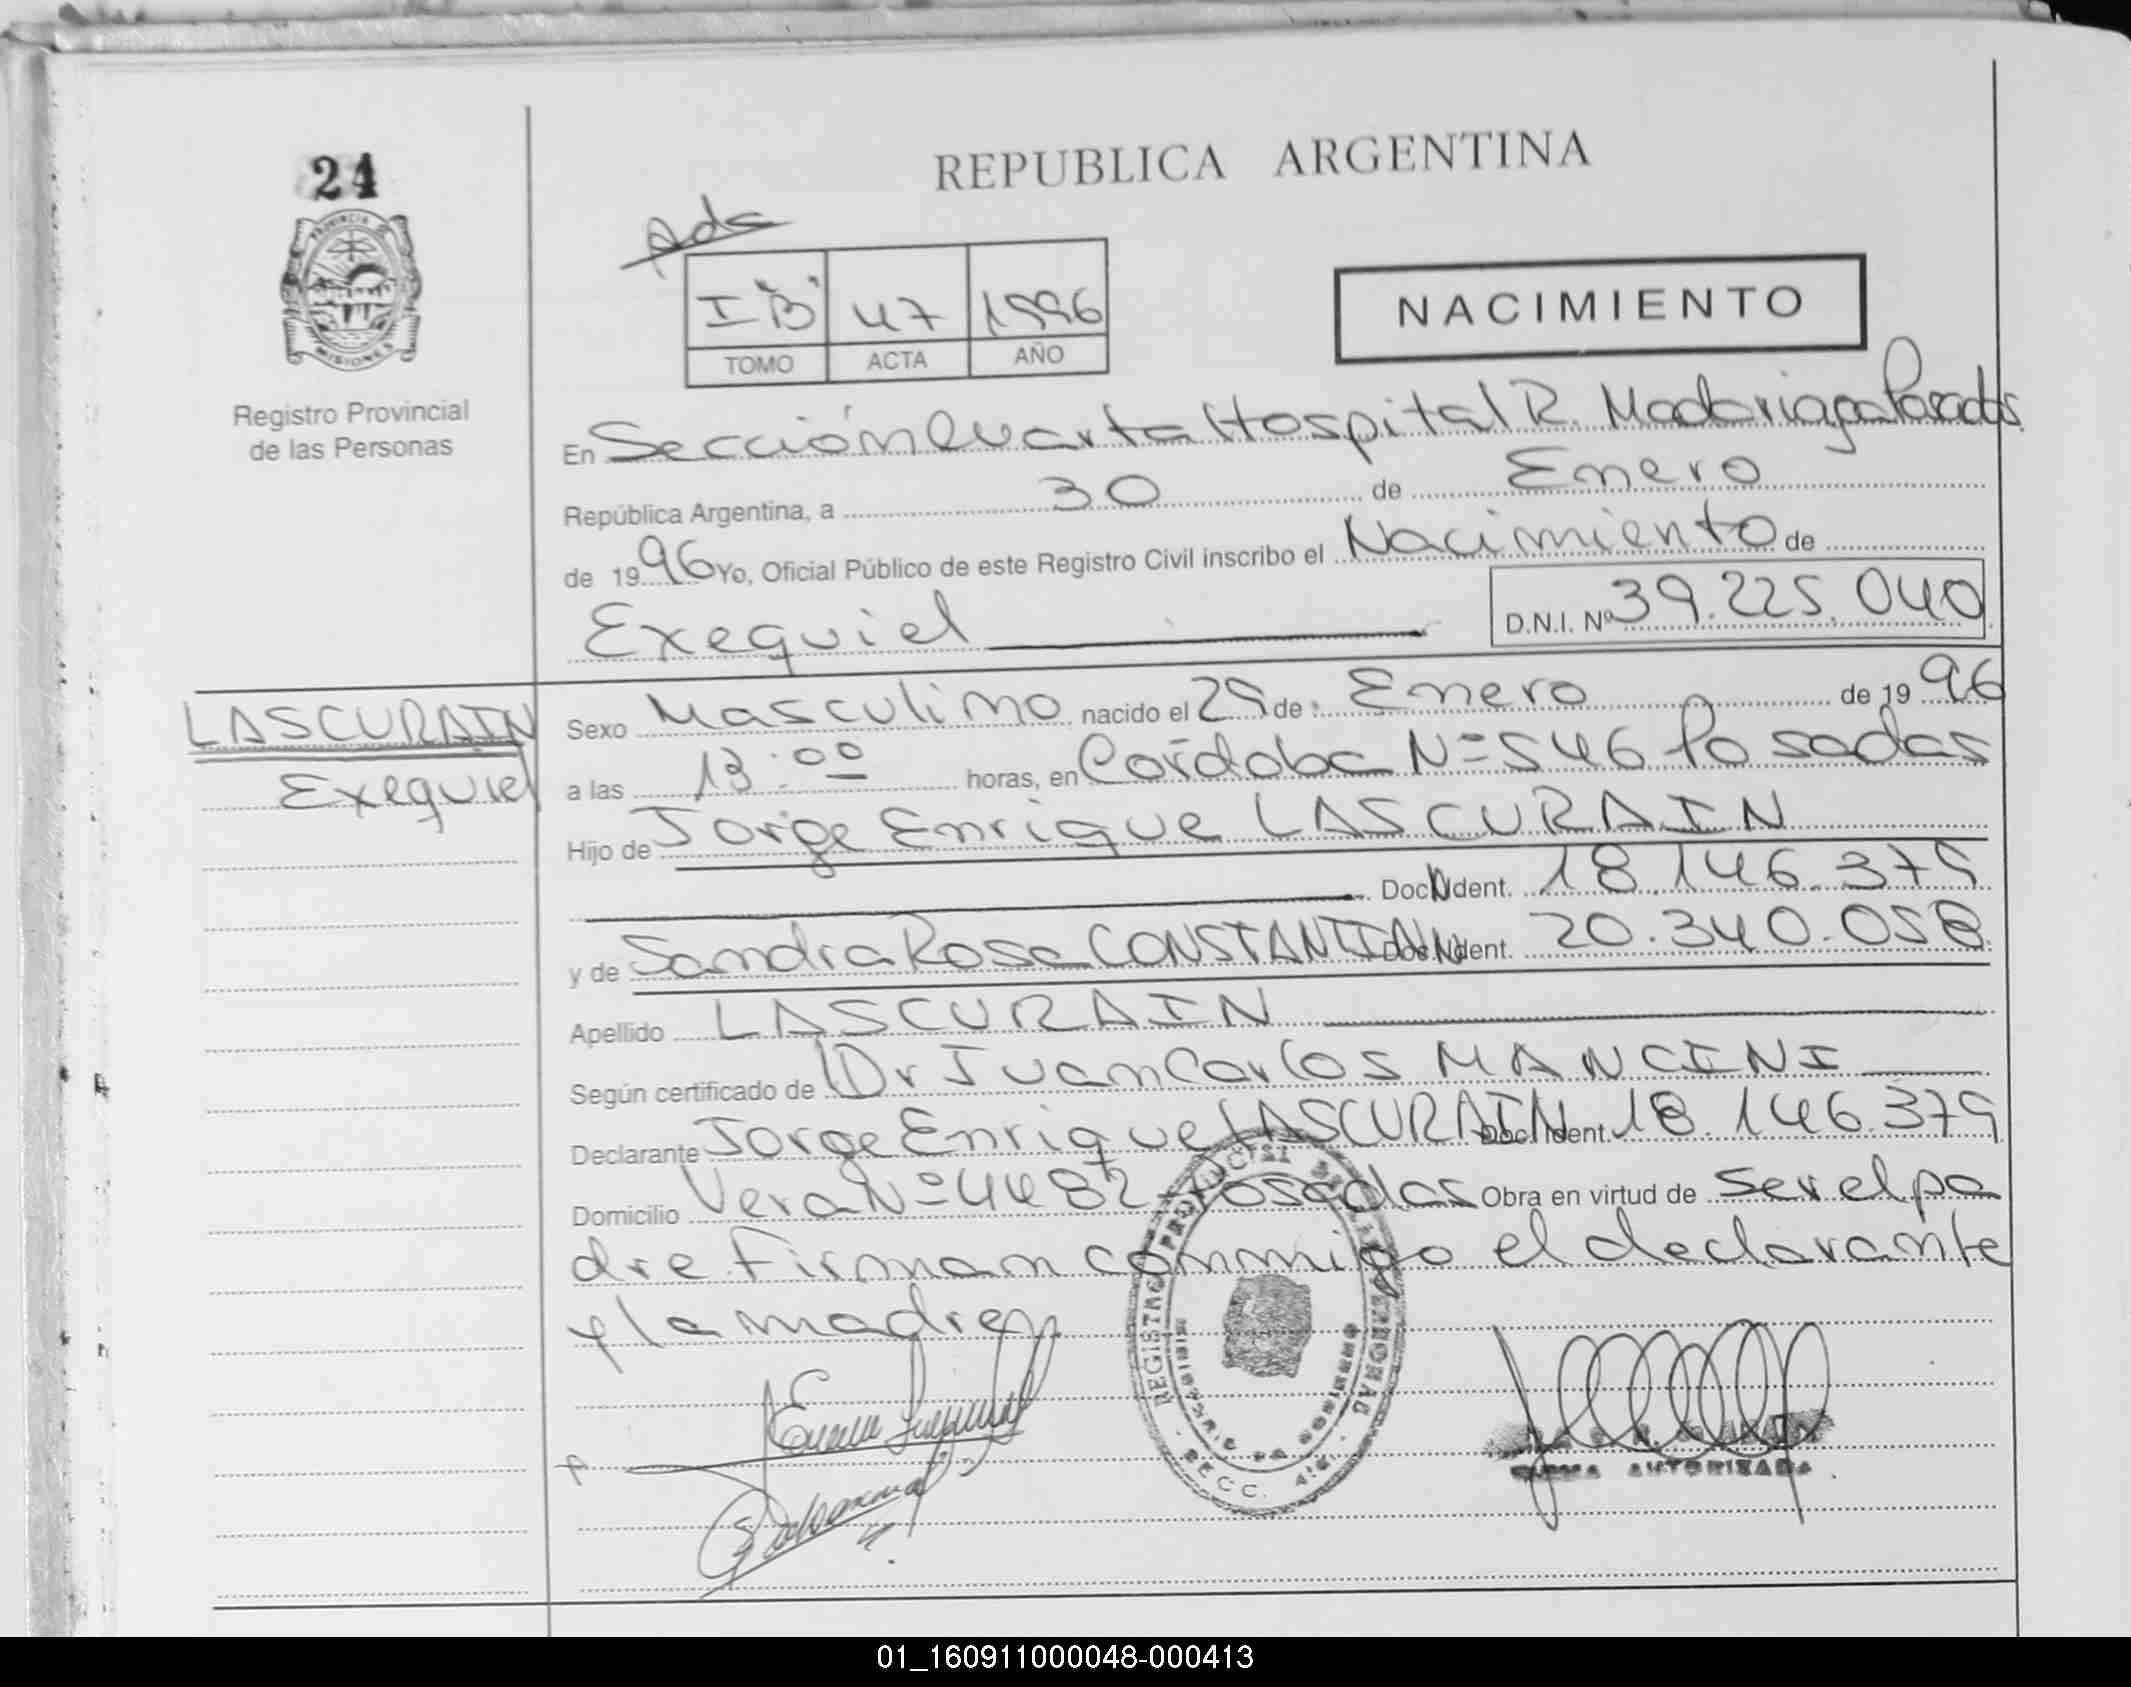 24
PROVINCIA DE
MISIONES
Registro Provincial
de las Personas
REPUBLICA ARGENTINA
Ads
I "B" 47 1996
TOMO ACTA AÑO
NACIMIENTO
En Sección Cuarta Hospital R. Madariaga Posadas
República Argentina, a 30 de Enero
de 1996 Yo, Oficial Público de este Registro Civil inscribo el Nacimiento de
Exequiel D.N.I. Nº 39.225.040
LASCURAIN
Exequiel
Sexo Masculino nacido el 29 de Enero de 1996
a las 13:00 horas, en Córdoba Nº 546 Posadas
Hijo de Jorge Enrique LASCURAIN
Doc. Ident. 18.146.379
y de Sandra Rosa CONSTANTINI Doc. Ident. 20.340.058
Apellido LASCURAIN
Según certificado de Dr Juan Carlos MANCINI
Declarante Jorge Enrique LASCURAIN Doc. Ident. 18.146.379
Domicilio Vera Nº 4482 Posadas Obra en virtud de ser el pa
dre firman conmigo el declarante
y la madre
REGISTRO PROVINCIAL DE LAS PERSONAS
SECC. 4ta.
FIRMA AUTORIZADA
01_160911000048-000413